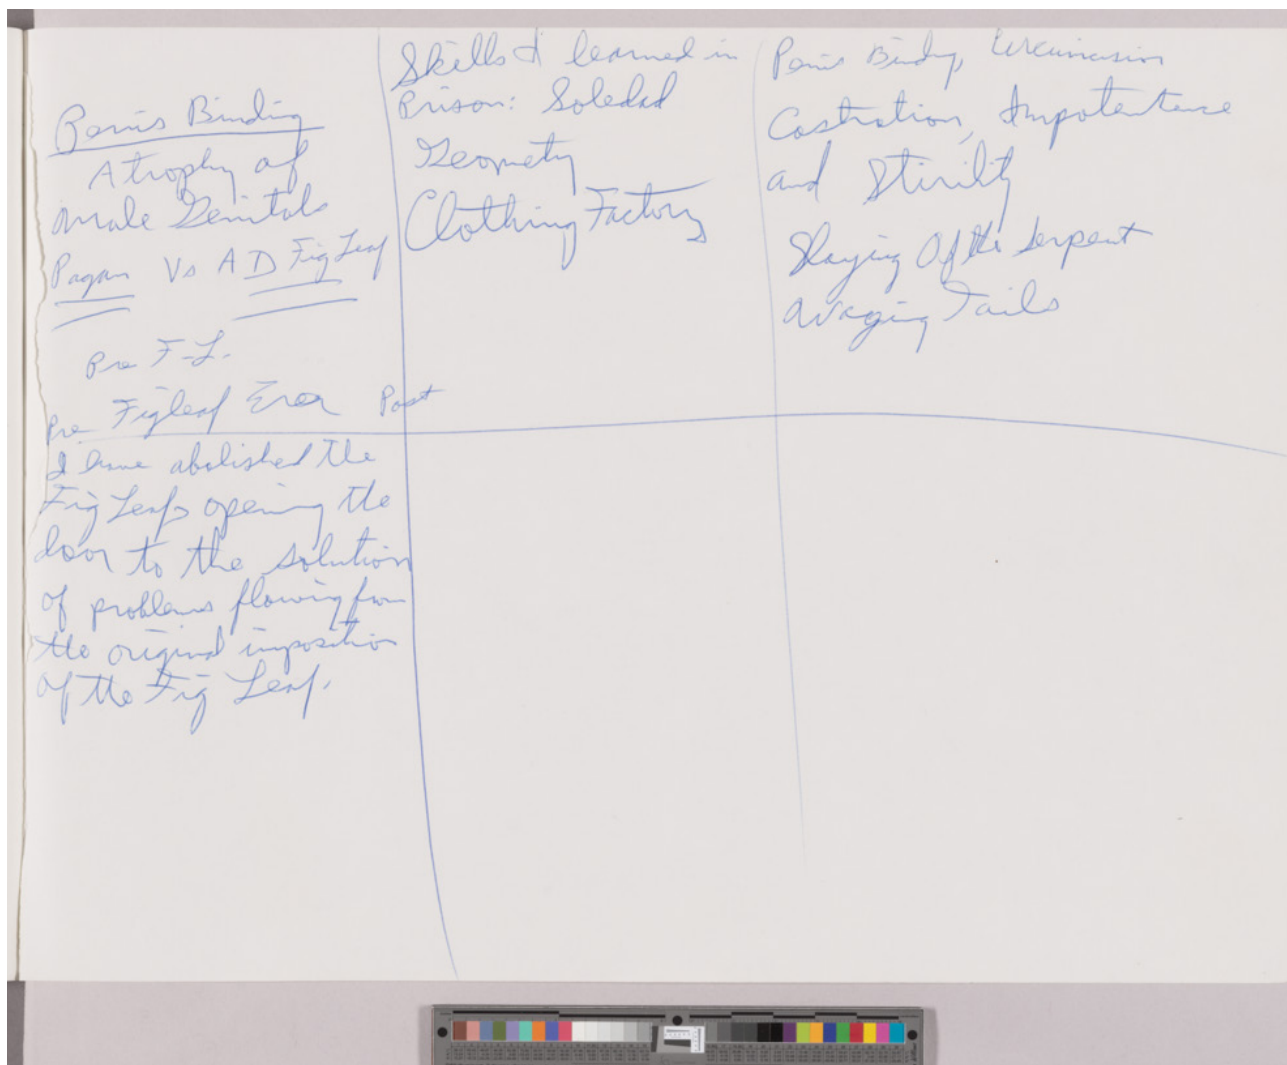 Penis Binding
Atrophy of
Male Genitals
Pagan Vs A D Fig Leaf
Pre F-L.
Pre Figleaf Era Post
I have abolished the
Fig Leaf, opening the
door to the solution
of problems flowing from
the original imposition
of the Fig Leaf.
Skills I learned in
Prison: Soledad
Geometry
Clothing Factory
Penis Binding, Circumcision
Castration, Impotentence
and Stirilty
Slaying Of the Serpent
Waging Tails